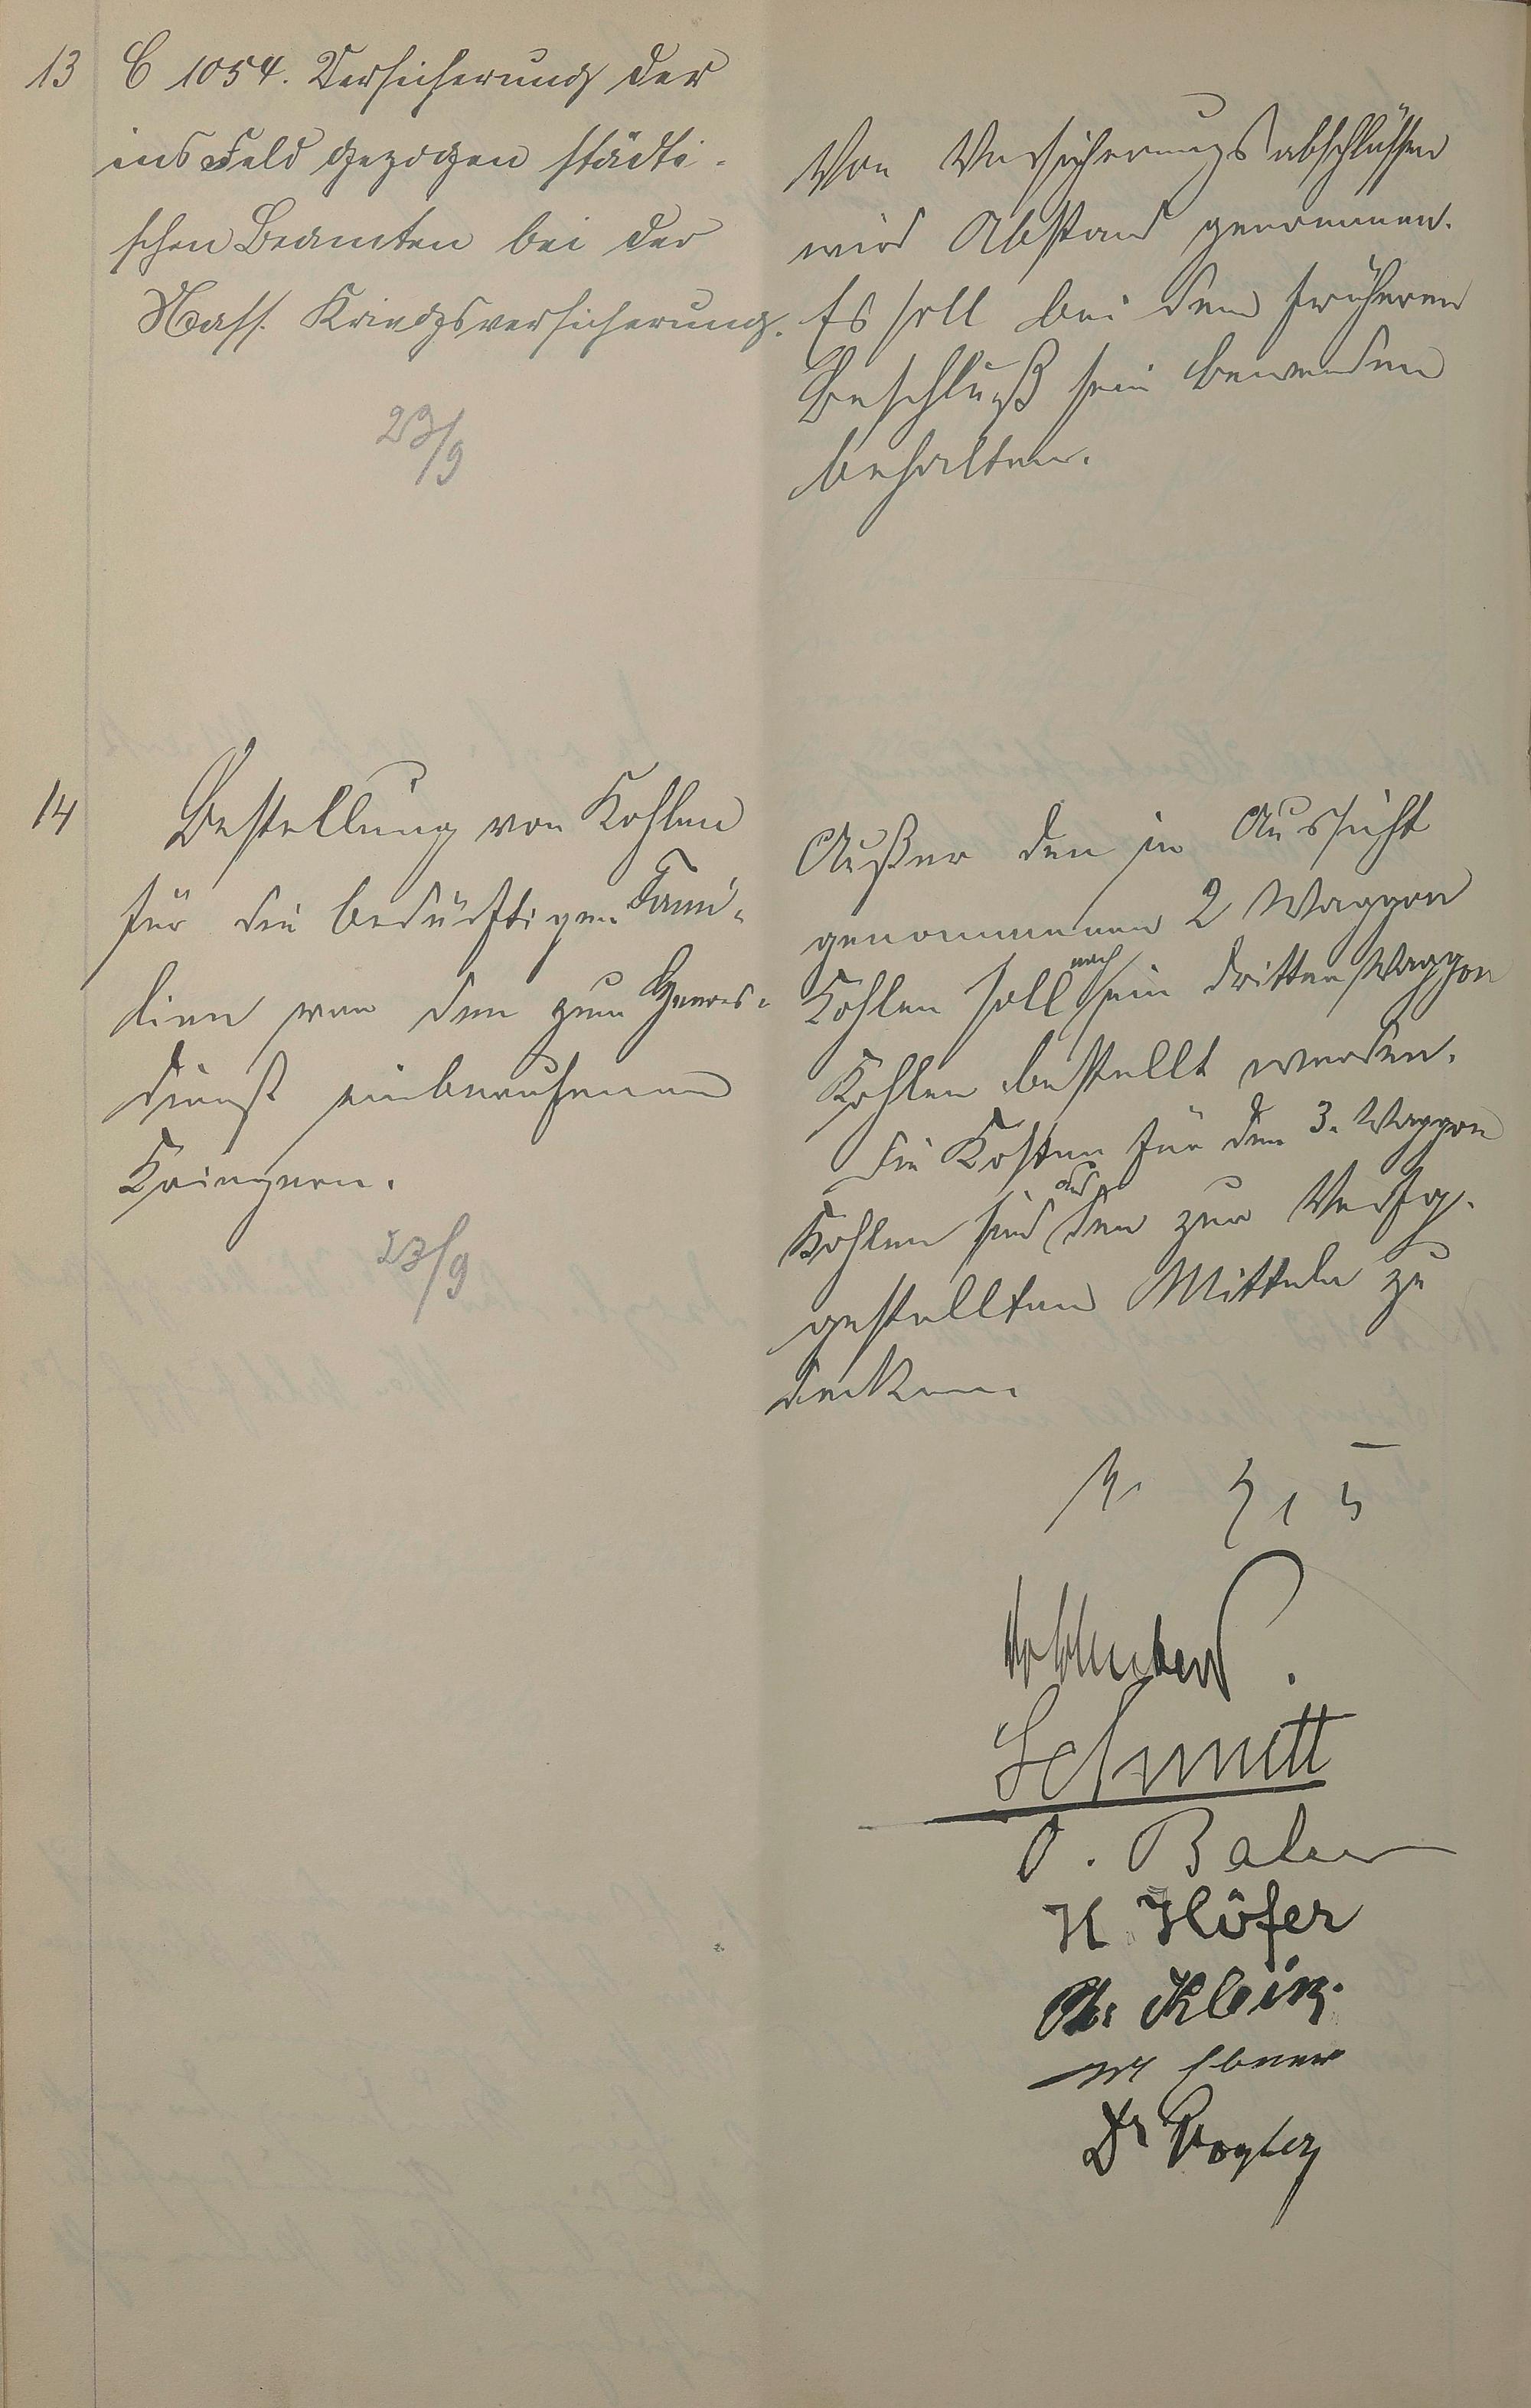 13
C 1054. Versicherung der
ins Feld gezogen städti-
schen Beamten bei der
Nass. Kriegsversicherung.
23/9
Von Versicherungsabschlüssen
wird Abstand genommen.
Es soll bei dem früheren
Beschluß sein Bewenden
behalten.
14
Bestellung von Kohlen
für die bedürftigen Fami-
lien von den zum Heeres-
dienst einberufenen
Kriegern.
23/9
Außer den in Aussicht
genommenen 2 Waggon
Kohlen soll noch ein dritter Waggon
Kohlen bestellt werden.
Die Kosten für den 3. Waggon
Kohlen sind aus den zur Verfg.
gestellten Mitteln zu
decken.
Schmitt
O. Balzer
H. Höfer
Klein.
Ebner
Dr Vogler